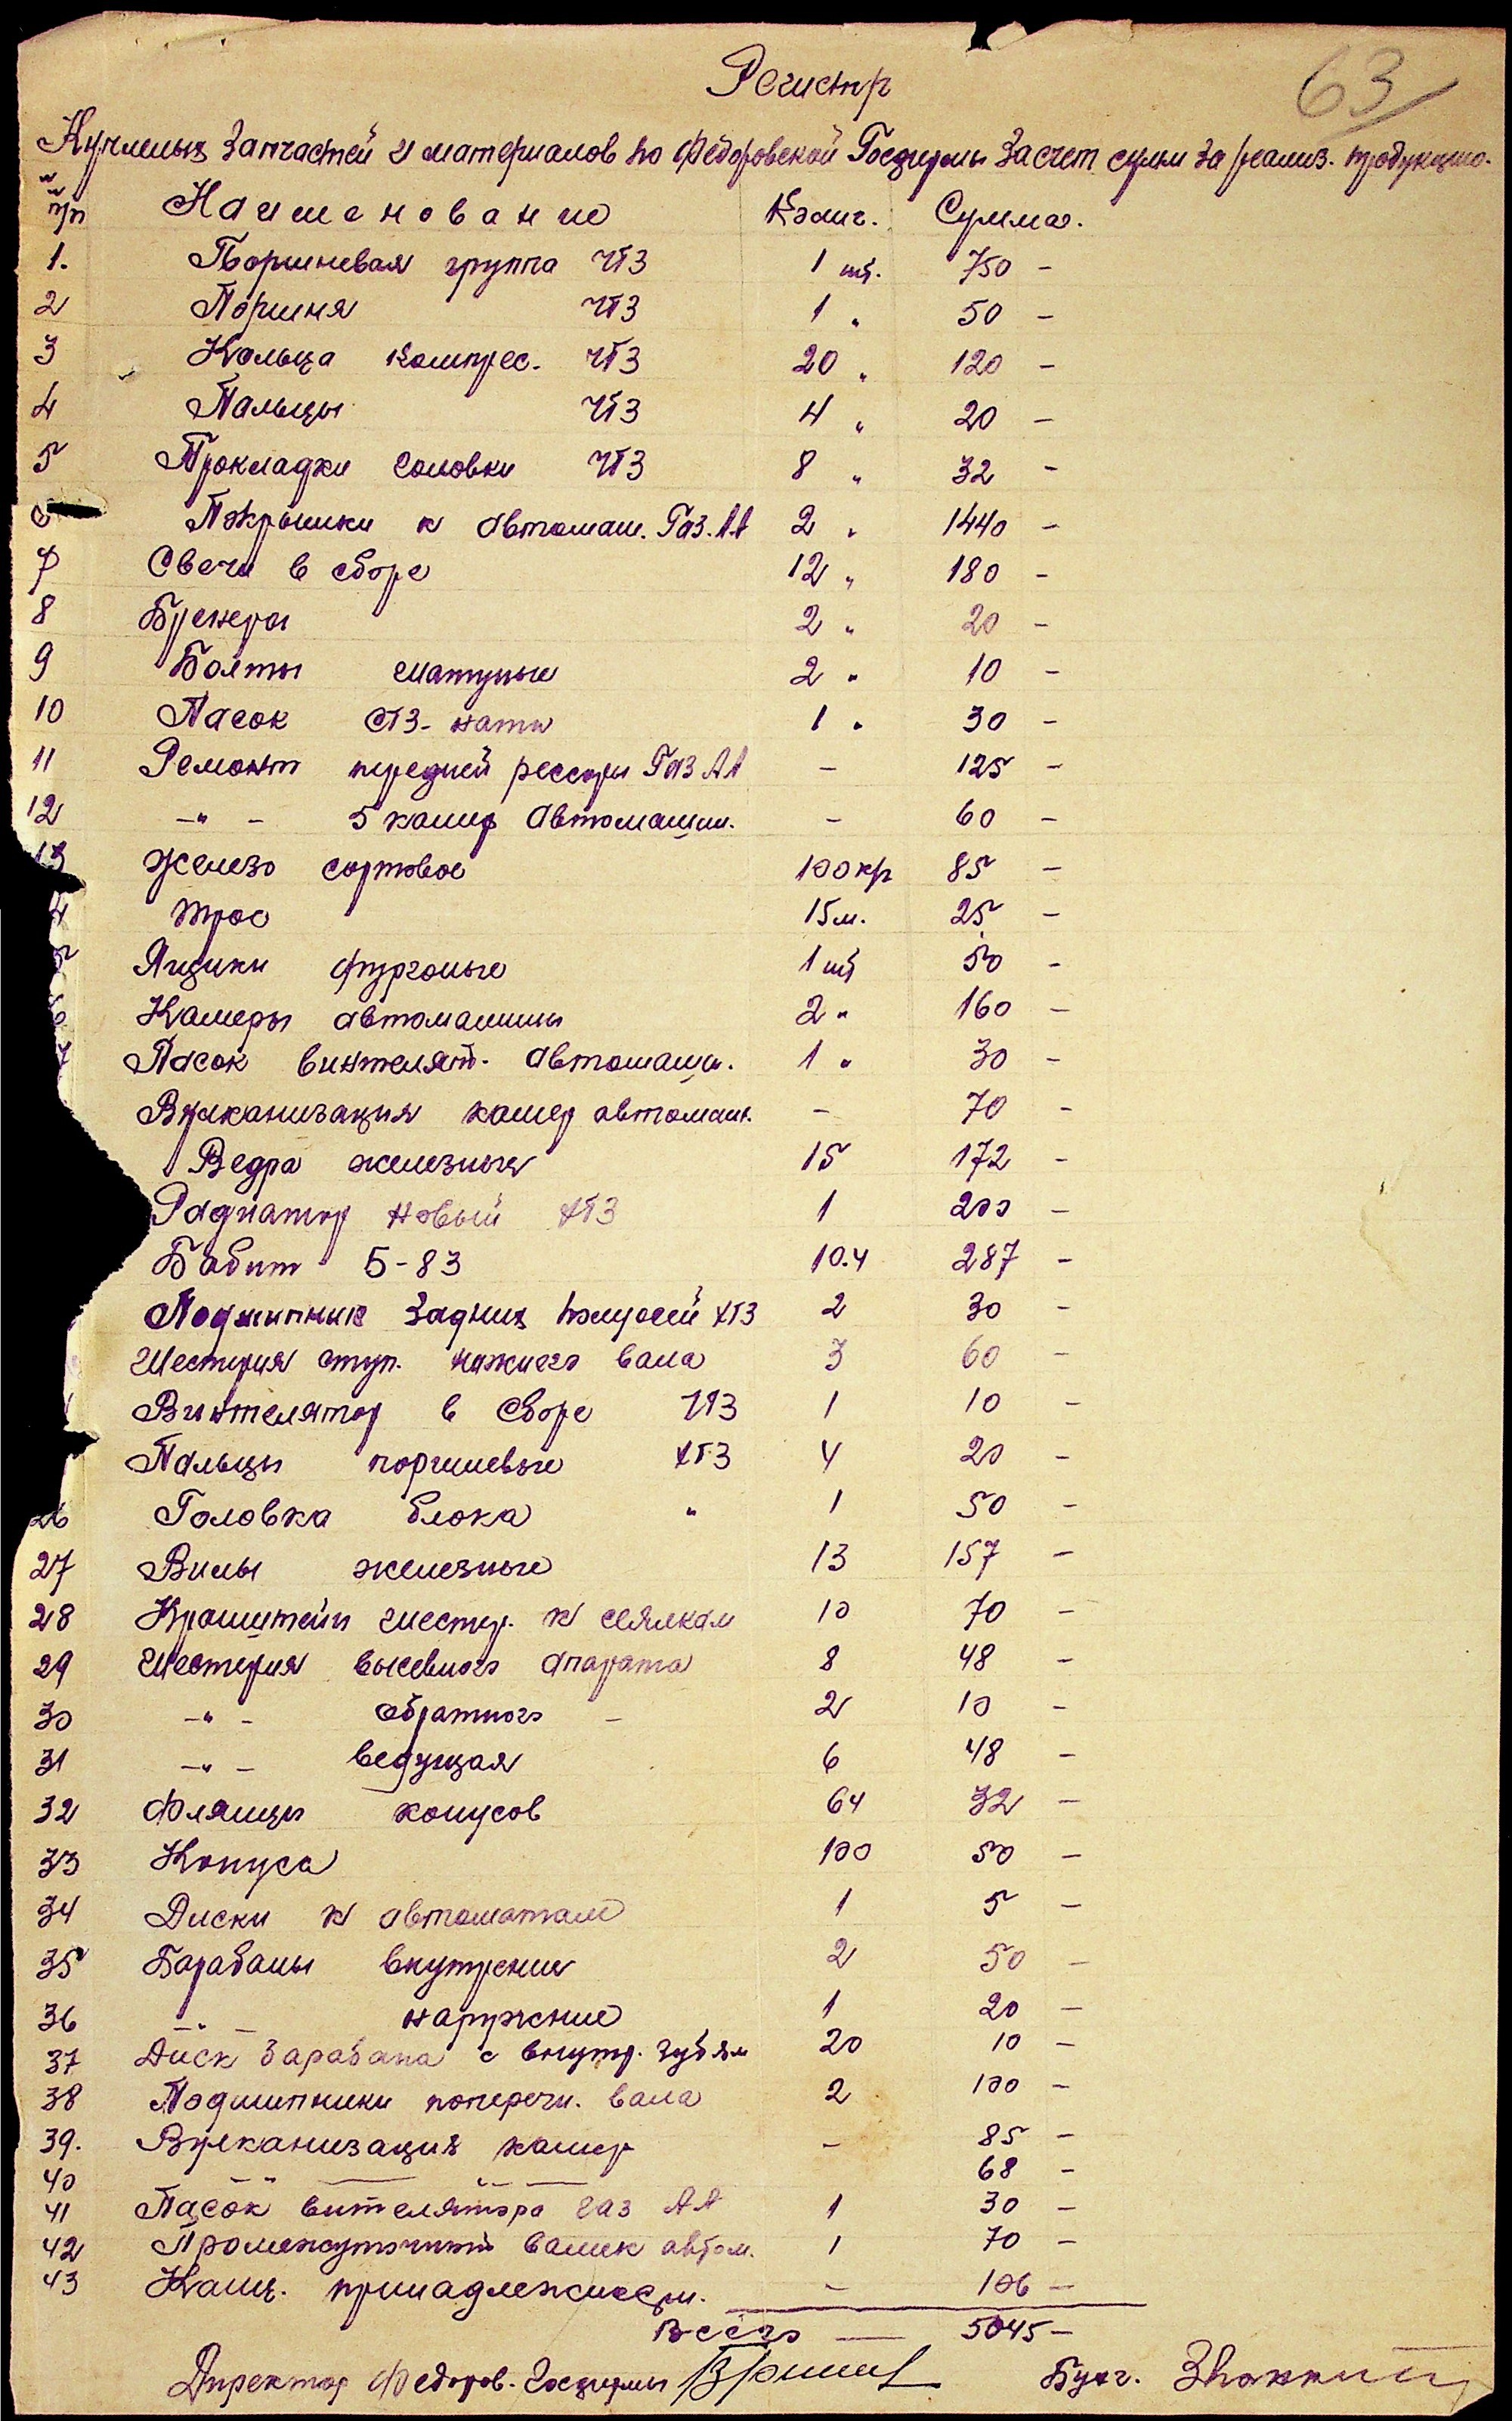 63
Регистр
Купленых запчастей и материалов по Федоровской Госфермы за счет сумм за реализ. продукцию.
п/п Наименование Колич. Сумма.
1. Поршневая группа ЧТЗ 1 шт. 750 -
2 Поршня ЧТЗ 1 " 50 -
3 Кольца компрес. ЧТЗ 20 " 120 -
4 Пальцы ЧТЗ 4 " 20 -
5 Прокладки головки ЧТЗ 8 " 32 -
Покрышки к автомаш. Газ.АА 2 " 1440 -
7 Свечи в сборе 12 " 180 -
8 2 " 20 -
9 Болты шатуные 2 " 10 -
10 Пасок СТЗ-нати 1 " 30 -
11 Ремонт передней рессоры Газ АА - 125 -
12 -"- 5 камер автомашин. - 60 -
13 Железо сортовое 100 кг 85 -
4 Трос 15 м. 25 -
5 Ящики фургоные 1 шт 50 -
6 Камеры автомашины 2 " 160 -
7 Пасок винтелят. автомаши. 1 " 30 -
Вулканизация камер автомаш. - 70 -
Ведра железные 15 172 -
Радиатор новый ХТЗ 1 200 -
Бабит Б-83 10.4 287 -
Подшипник задних полуосей ХТЗ 2 30 -
Шестерня ступ. нижнего вала 3 60 -
Винтелятор в сборе ЧТЗ 1 10 -
Пальцы поршневые ХТЗ 4 20 -
26 Головка блока " 1 50 -
27 Вилы железные 13 157 -
28 Кронштейн шестер. к сеялкам 10 70 -
29 Шестерня высевного апарата 8 48 -
30 -"- обратного - 2 10 -
31 -"- ведущая 6 48 -
32 Флянцы конусов 64 32 -
33 Конуса 100 50 -
34 Диски к автоматам 1 5 -
35 Барабаны внутрение 2 50 -
36 -"- наружние 1 20 -
37 Диск барабана с внутр. зубям 20 10 -
38 Подшипники поперечн. вала 2 100 -
39. Вулканизация камер - 85 -
40 -"- -"- 68 -
41 Пасок вителятора газ АА 1 30 -
42 Промежуточный валик автом. 1 70 -
43 Канц. принадлежности. - 106 -
Всего - 5045 -
Директор Федоров. Госфермы Бухг.